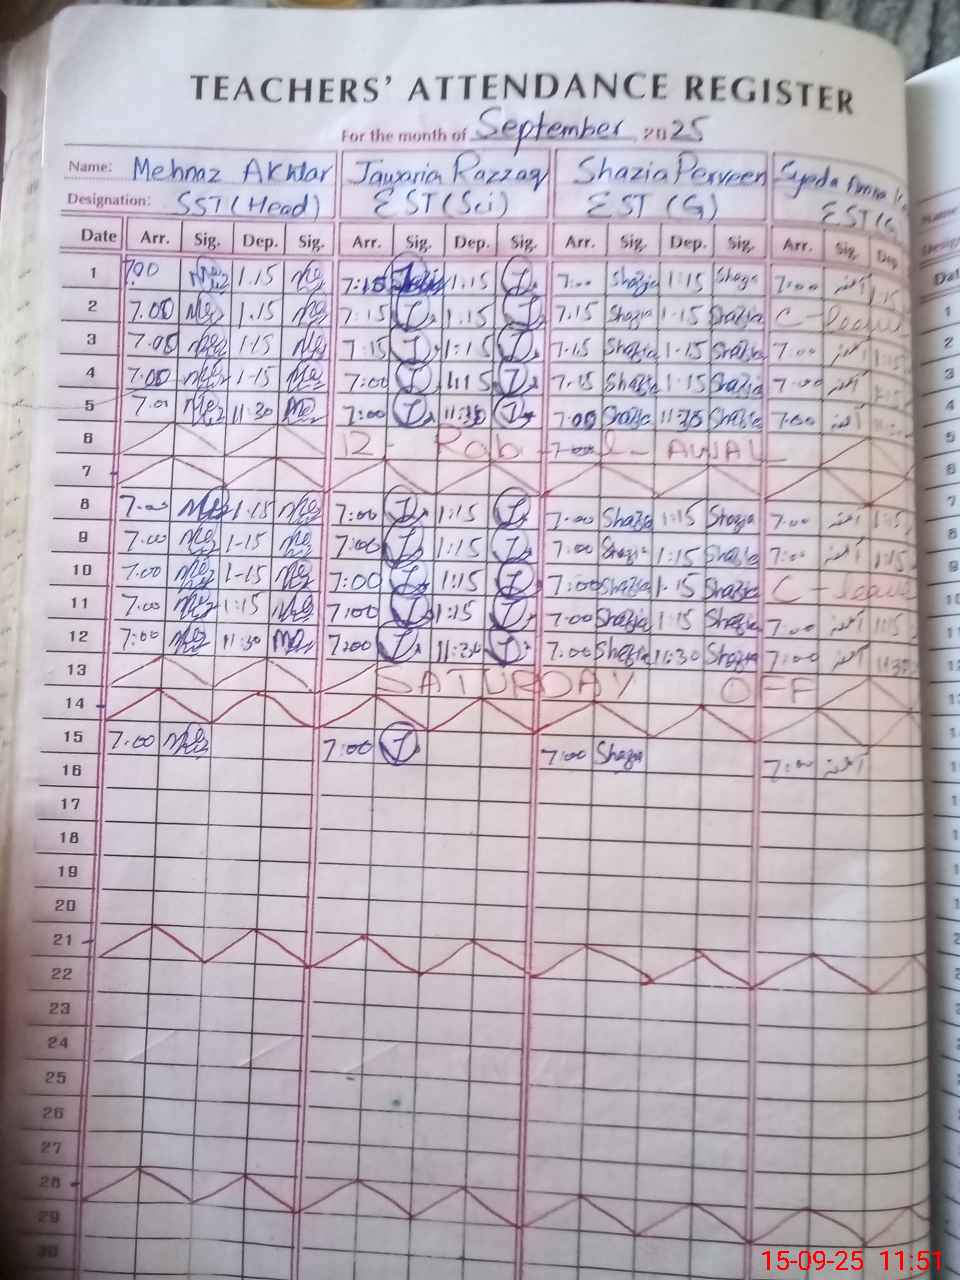 TEACHERS' ATTENDANCE REGISTER
For the month of September 2025
Name: Mehnaz Akhtar Jawaria Razzaq Shazia Perveen Syeda
Designation: SST (Head) EST (Sci) EST (G) EST (G)
Date Arr. Sig. Dep. Sig. Arr. Sig. Dep. Sig. Arr. Sig. Dep. Sig. Arr. Sig. Dep
1 7:00 1.15 7:15 1.15 7:00 Shazia 1:15 Shazia 7:00 1:15
2 7.00 1.15 7:15 1:15 7.15 Shazia 1-15 Shazia C-leave
3 7.05 1-15 7:15 1:15 7.15 Shazia 1-15 Shazia 7:00 1:15
4 7.00 1-15 7:00 1:15 7.15 Shazia 1.15 Shazia 7:00
5 7.00 11:30 7:00 11:30 7.00 Shazia 11:30 Shazia 7:00
6 12- Rab -ul- AWAL
7
8 7.00 1.15 7:00 1:15 7.00 Shazia 1:15 Shazia 7.00 1:15
9 7.00 1-15 7:00 1:15 7:00 Shazia 1:15 Shazia 7:00 1:15
10 7.00 1-15 7:00 1:15 7:00 Shazia 1.15 Shazia C-leave
11 7.00 1:15 7:00 1:15 7.00 Shazia 1:15 Shazia 7:00
12 7:00 11:30 7:00 11:30 7:00 Shazia 11:30 Shazia 7:00 11:30
13 SATURDAY OFF
14
15 7.00 7:00 7:00 Shazia 7:00
16
17
18
19
20
21
22
23
24
25
26
27
28
29
30
15-09-25 11:51